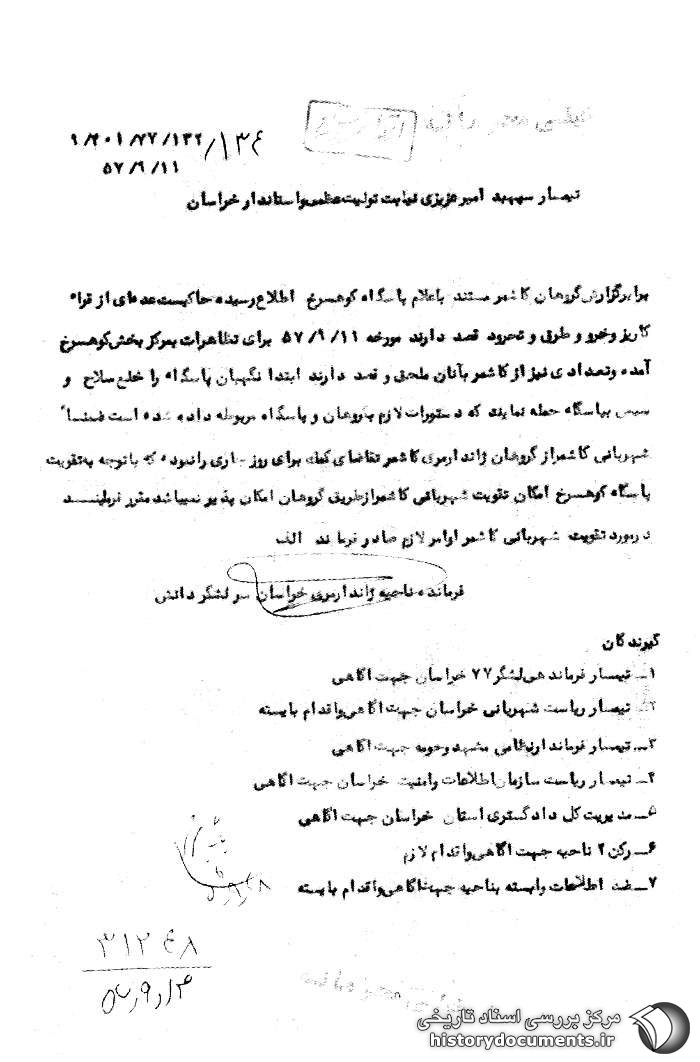 خیلی محرمانه
۹/۲۰۱/۷۷/۱۳۲/۱۳۴
۵۷/۹/۱۱
تیمسار سپهبد امیر عزیزی نیابت تولیت عظمی و استاندار خراسان
برابر گزارش گروهان کاشمر مستند باعلام پاسگاه کوهسرخ اطلاع رسیده حاکیست عده‌ای از قراء
کاریز و خرو و طرق و تجرود قصد دارند مورخه ۵۷/۹/۱۱ برای تظاهرات بمرکز بخش کوهسرخ
آمده و تعدادی نیز از کاشمر بآنان ملحق و قصد دارند ابتدا نگهبان پاسگاه را خلع سلاح و
سپس بپاسگاه حمله نمایند که دستورات لازم بگروهان و پاسگاه مربوطه داده شده است ضمناً
شهربانی کاشمر از گروهان ژاندارمری کاشمر تقاضای کمک برای روز جاری را نموده که باتوجه به تقویت
پاسگاه کوهسرخ امکان تقویت شهربانی کاشمر از طریق گروهان امکان پذیر نمیباشد مقرر فرمایند
در مورد تقویت شهربانی کاشمر اوامر لازم صادر فرمایند الف
فرمانده ناحیه ژاندارمری خراسان سرلشگر دانش
گیرندگان
۱ـ تیمسار فرماندهی لشگر ۷۷ خراسان جهت آگاهی
۲ـ تیمسار ریاست شهربانی خراسان جهت آگاهی و اقدام بایسته
۳ـ تیمسار فرماندار نظامی مشهد و حومه جهت آگاهی
۴ـ تیمسار ریاست سازمان اطلاعات و امنیت خراسان جهت آگاهی
۵ـ مدیریت کل دادگستری استان خراسان جهت آگاهی
۶ـ رکن ۲ ناحیه جهت آگاهی و اقدام لازم
۷ـ ضد اطلاعات وابسته بناحیه جهت آگاهی و اقدام بایسته
۳۱۲۴۸
۵۷٫۹٫۱۴
مرکز بررسی اسناد تاریخی
historydocuments.ir